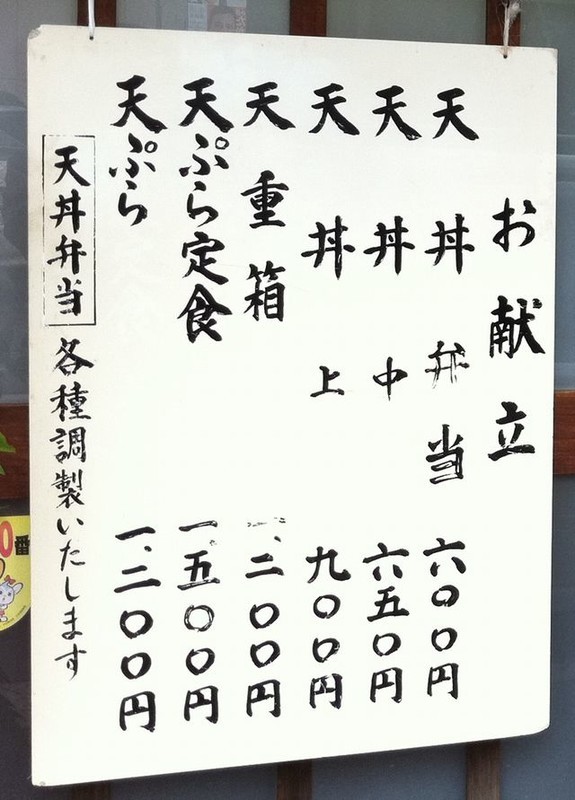 お献立
天丼弁当 六〇〇円
天丼 中 六五〇円
天丼 上 九〇〇円
天重箱 一、二〇〇円
天ぷら定食 一、五〇〇円
天ぷら 一、二〇〇円
天丼弁当 各種調製いたします
0番